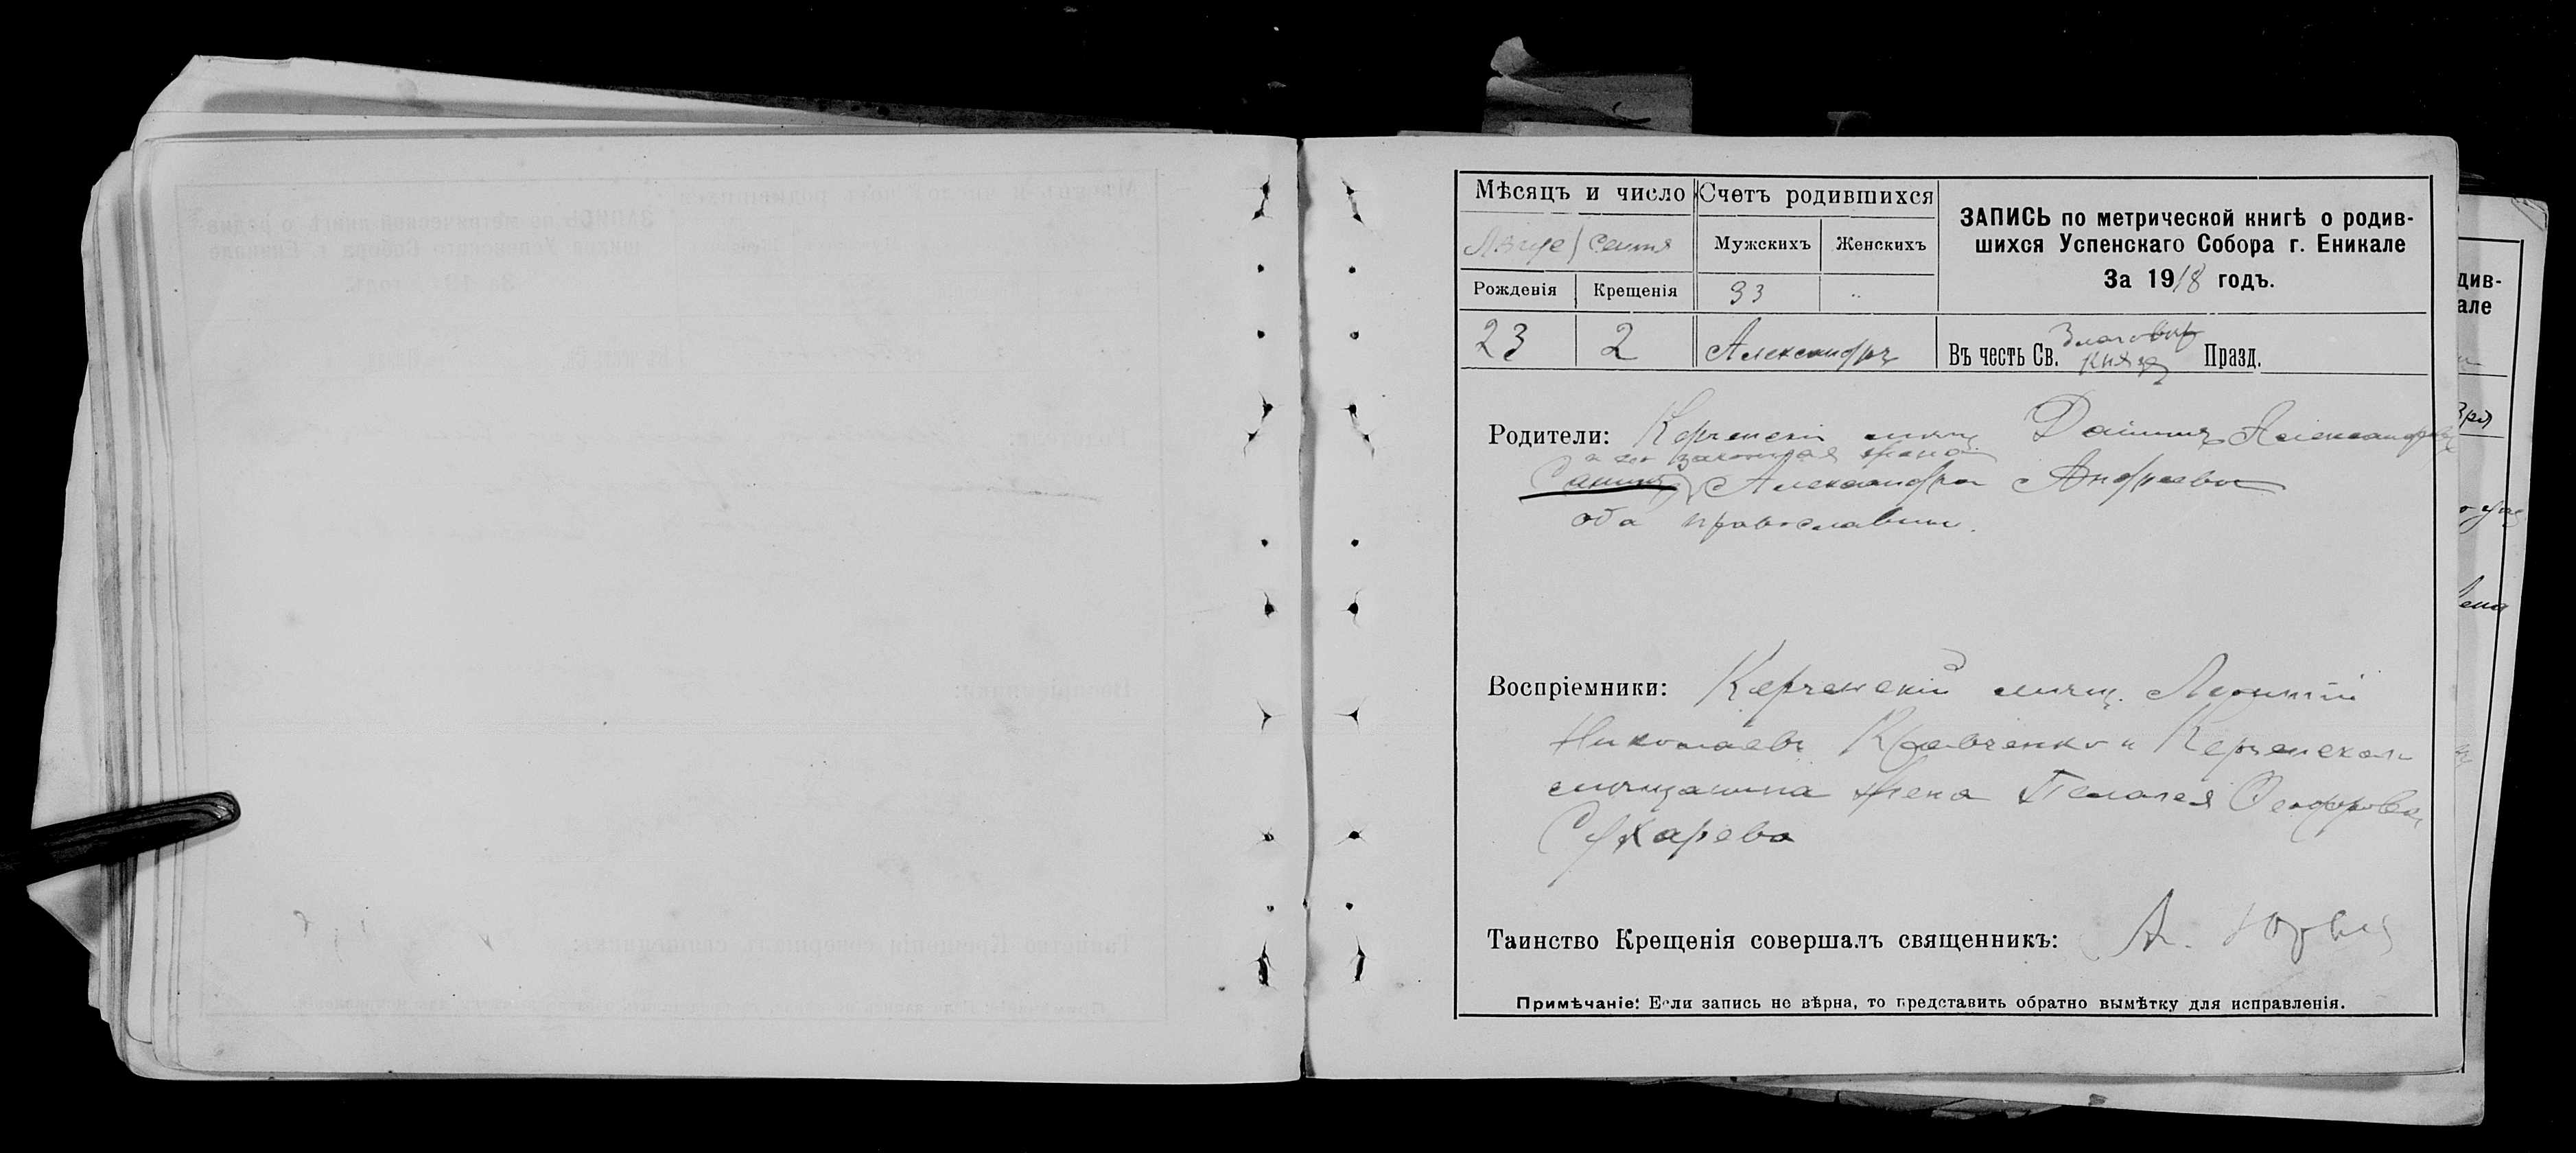 Мѣсяцъ и число
Счетъ родившихся
ЗАПИСЬ по метрической книгѣ о родив-
шихся Успенскаго Собора г. Еникале
За 1918 годъ.
Мужскихъ Женскихъ
Рожденія Крещенія
33 "
23 2 Александръ
Въ честь Св. Благовѣр Князя Празд.
Родители: Керченскій мѣщ. Александровъ
и его законная жена
Александра Андреевна
оба православные.
Воспріемники: Керченскій мѣщ.
Николаевъ Кравченко и Керченскаго
мѣщанина жена Пелагея
Сухарева
Таинство Крещенія совершалъ священникъ: А.
Примѣчаніе: Если запись не вѣрна, то представить обратно вымѣтку для исправленія.
див-
але